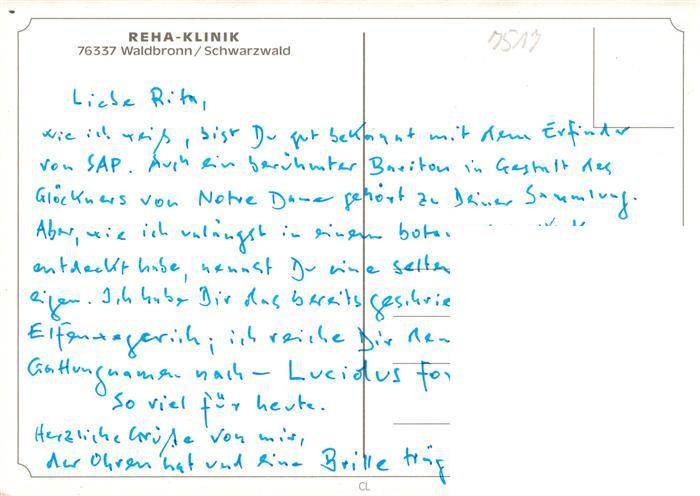 REHA-KLINIK
76337 Waldbronn/Schwarzwald
7517
Liebe Rita,
wie ich weiß, bist Du gut bekannt mit dem Erfinder
von SAP. Auch ein berühmter Bariton in Gestalt des
Glöckners von Notre Dame gehört zu Deiner Sammlung.
Aber, wie ich unlängst in einem
entdeckt habe, nennst Du eine
eigen. Ich habe Dir das bereits
ich reiche Dir
Gattungnamen nach – Lucidus
So viel für heute.
Herzliche Grüße von mir,
der Ohren hat und eine Brille
CL